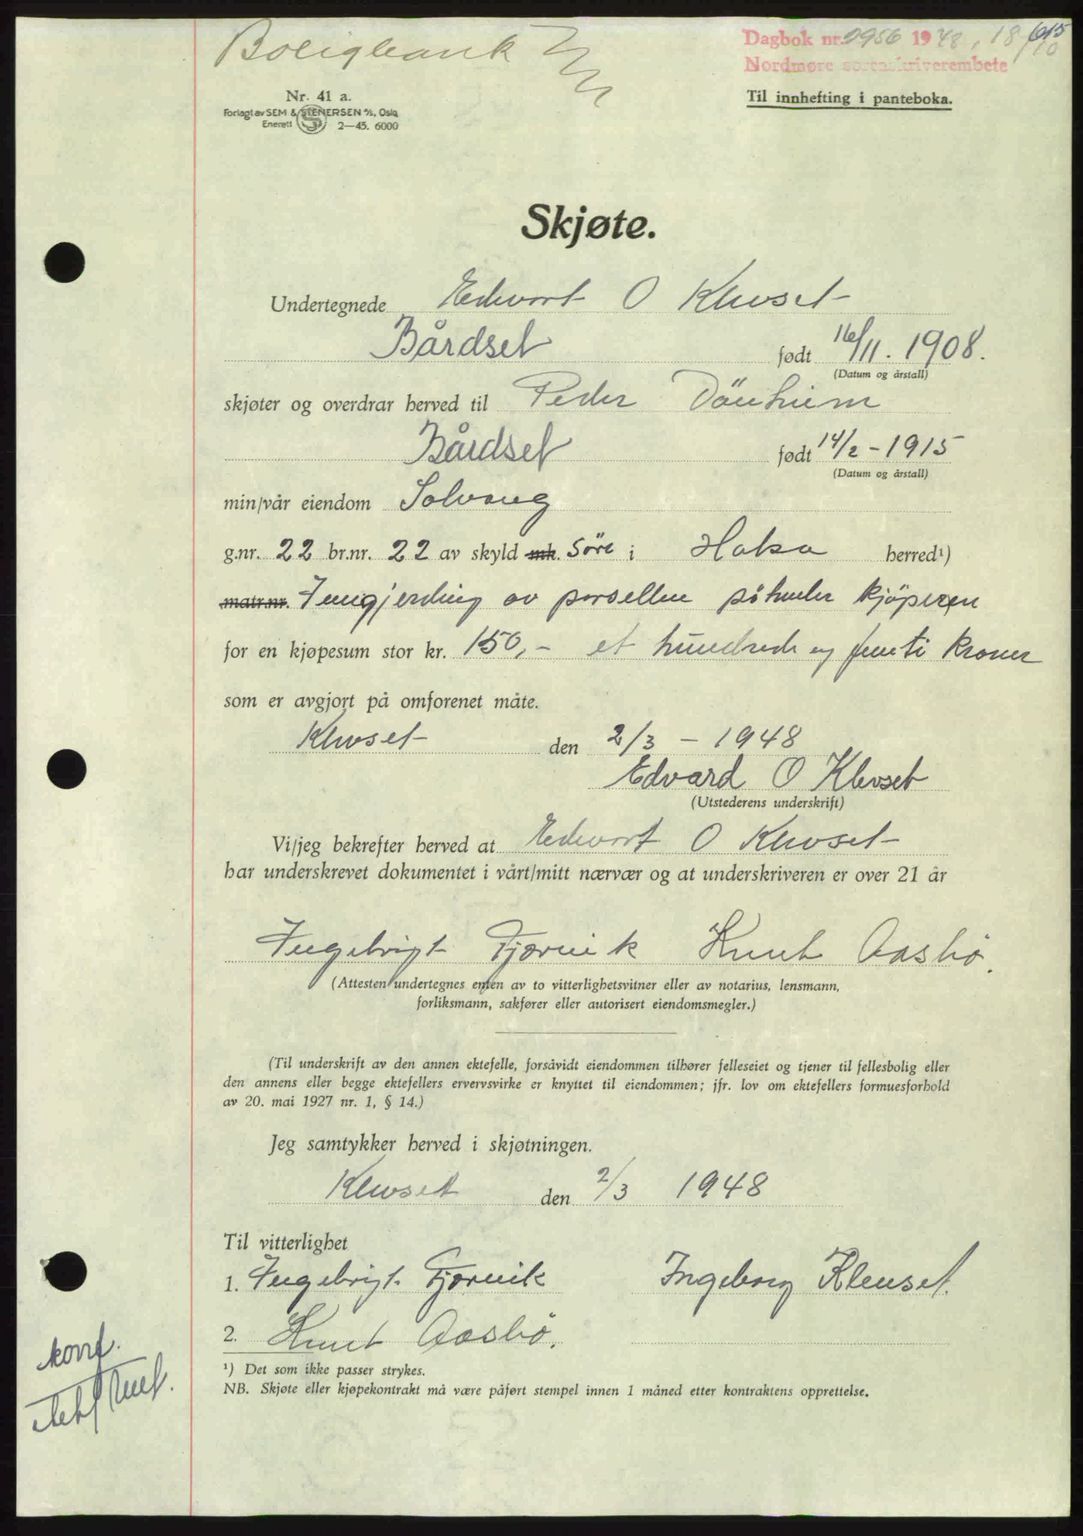 Boligbank
Dagbok nr. 2956 1948, 18/10
Nordmøre sorenskriverembete
615
Nr. 41 a.
Forlagt av SEM & STENERSEN A/S, Oslo
Enerett 2—45. 6000
Til innhefting i panteboka.
Skjøte.
Undertegnede Edvart O Klevset
Bårdset født 16/11. 1908.
(Datum og årstall)
skjøter og overdrar herved til Peder Dönheim
Bårdset født 14/2 - 1915
(Datum og årstall)
min/vår eiendom Solvang
g.nr. 22 br.nr. 22 av skyld mk. 5 öre i Halsa herred¹)
matr.nr. Inngjerding av parsellen påhviler kjöperen
for en kjøpesum stor kr. 150,- et hundrede og femti kroner
som er avgjort på omforenet måte.
Klevset den 2/3 - 1948
Edvard O Klevset
(Utstederens underskrift)
Vi/jeg bekrefter herved at Edvart O Klevset
har underskrevet dokumentet i vårt/mitt nærvær og at underskriveren er over 21 år
Ingebrigt Tjörnvik Knut Aasbö.
(Attesten undertegnes enten av to vitterlighetsvitner eller av notarius, lensmann,
forliksmann, sakfører eller autorisert eiendomsmegler.)
(Til underskrift av den annen ektefelle, forsåvidt eiendommen tilhører felleseiet og tjener til fellesbolig eller
den annens eller begge ektefellers ervervsvirke er knyttet til eiendommen; jfr. lov om ektefellers formuesforhold
av 20. mai 1927 nr. 1, § 14.)
Jeg samtykker herved i skjøtningen.
Klevset den 2/3 1948
Til vitterlighet
1. Ingebrigt Tjörnvik Ingeborg Klevset.
2. Knut Aasbö.
¹) Det som ikke passer strykes.
NB. Skjøte eller kjøpekontrakt må være påført stempel innen 1 måned etter kontraktens opprettelse.